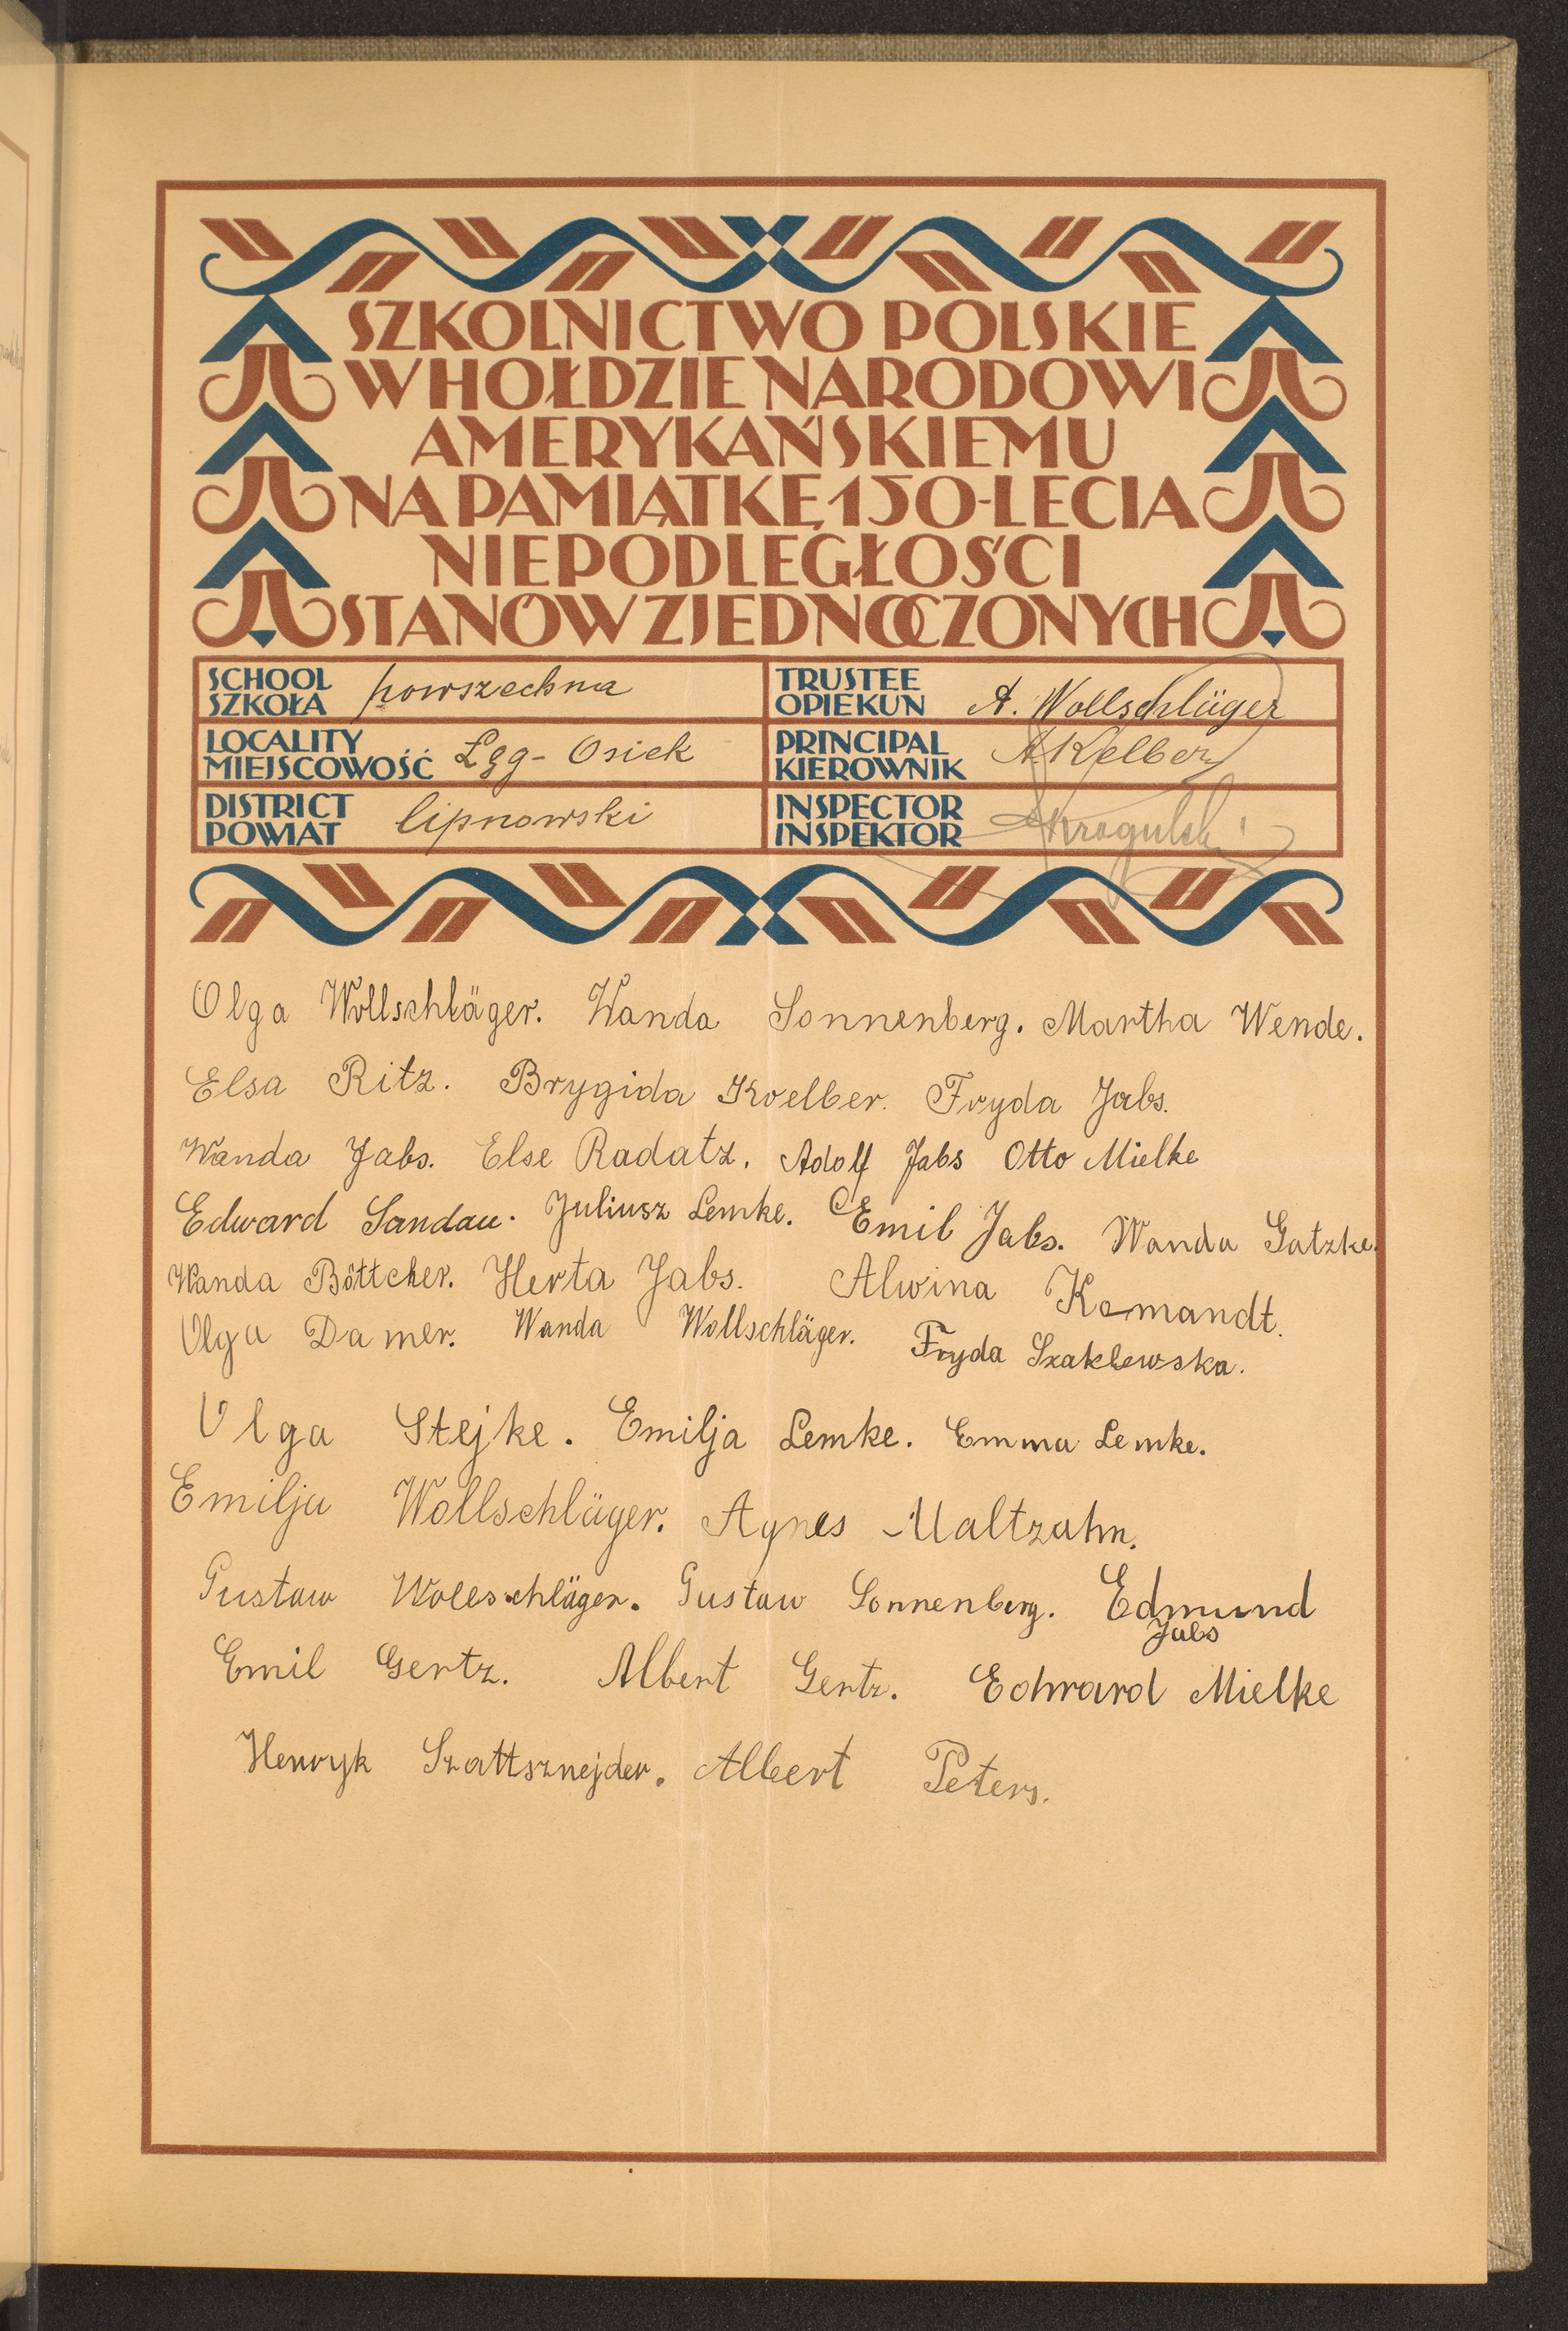 SZKOLNICTWO POLSKIE
W HOŁDZIE NARODOWI
AMERYKAŃSKIEMU
NA PAMIĄTKĘ 150-LECIA
NIEPODLEGŁOŚCI
STANÓW ZJEDNOCZONYCH
SCHOOL
SZKOŁA powszechna
TRUSTEE
OPIEKUN A. Wollschläger
LOCALITY
MIEJSCOWOŚĆ Łęg-Osiek
PRINCIPAL
KIEROWNIK AKelber
DISTRICT
POWIAT lipnowski
INSPECTOR
INSPEKTOR
Olga Wollschläger. Wanda Sonnenberg. Martha Wende.
Elsa Ritz. Brygida Koelber. Fryda Jabs.
Wanda Jabs. Else Radatz. Adolf Jabs Otto Mielke
Edward Sandau. Juliusz Lemke. Emil Jabs. Wanda Gatzke.
Wanda Böttcher. Herta Jabs. Alwina Komandt.
Olga Damer. Wanda Wollschläger. Fryda Szaklewska.
Olga Stejke. Emilja Lemke. Emma Lemke.
Emilja Wollschläger. Agnes Maltzahn.
Gustaw Wollschläger. Gustaw Sonnenberg. Edmund
Jabs
Emil Gertz. Albert Gertz. Edward Mielke
Henryk Szattsznejder. Albert Peters.